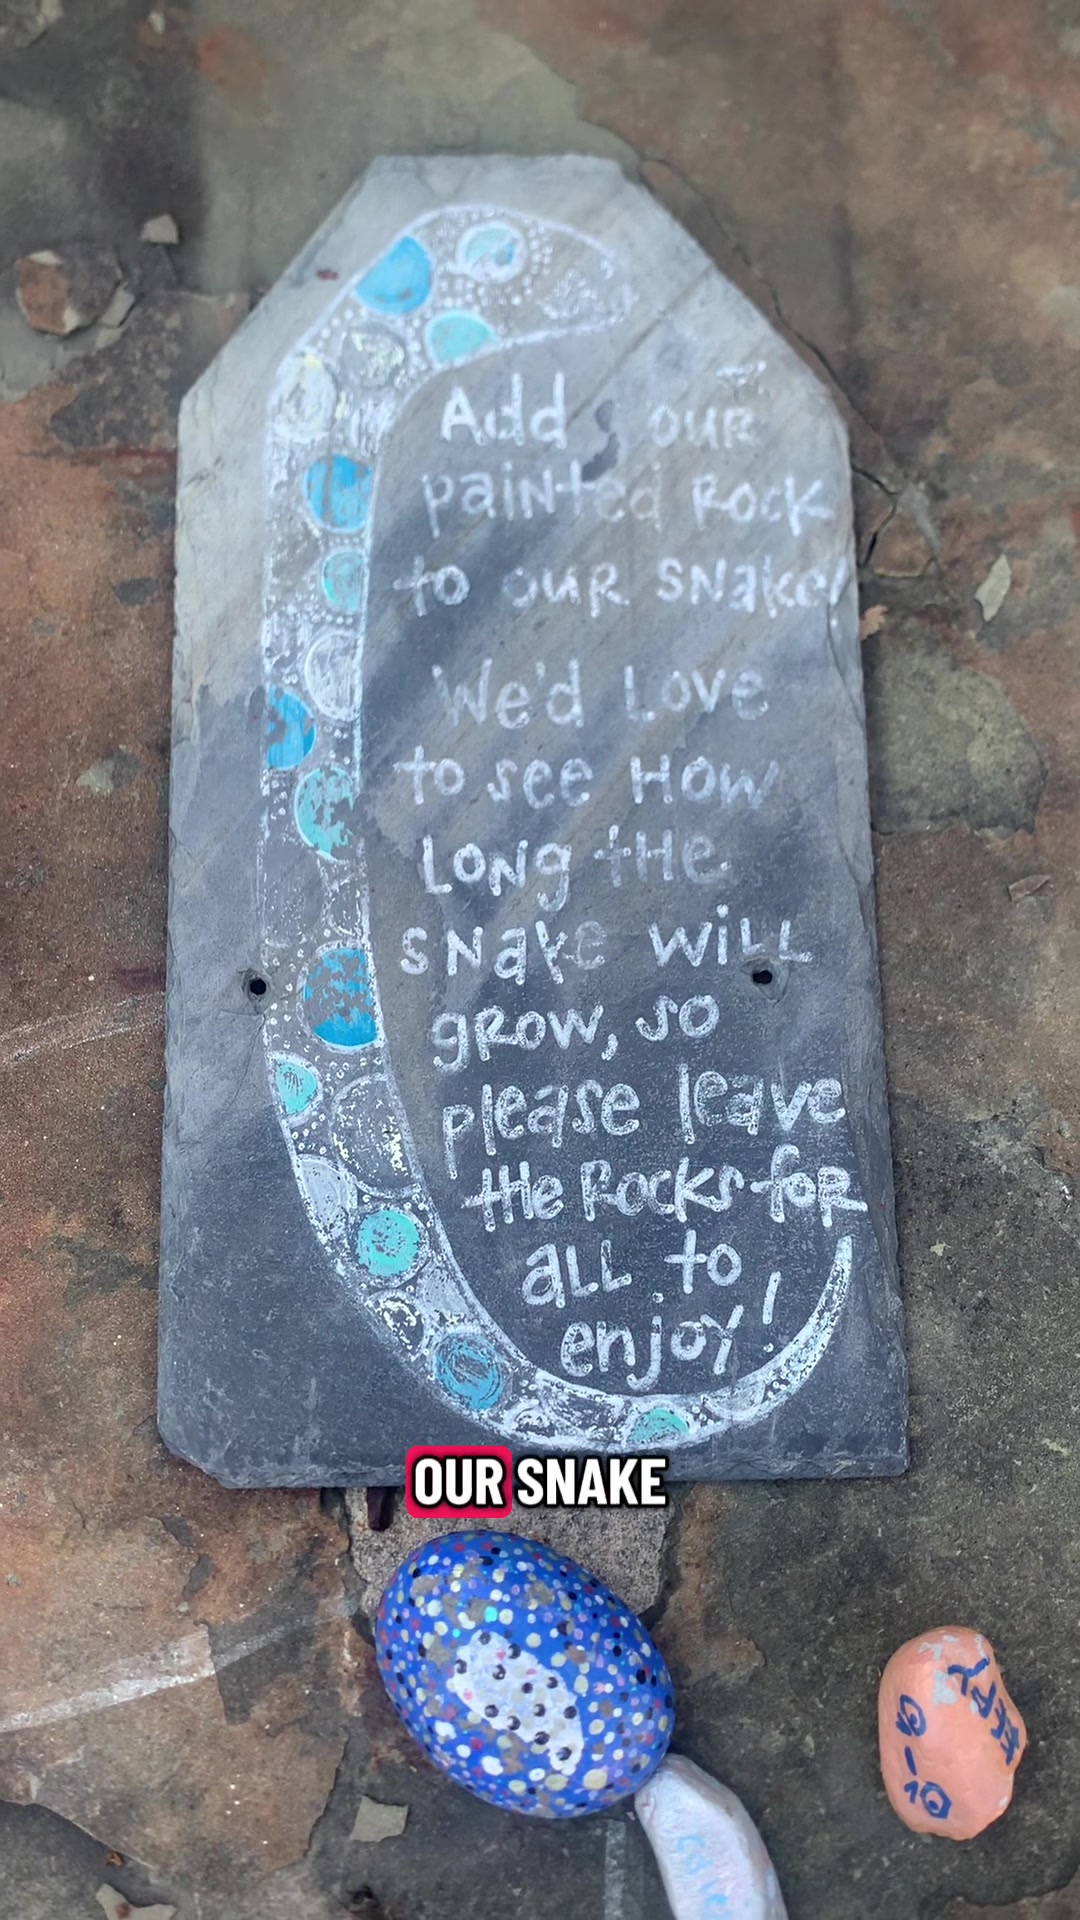 Add your
painted Rock
to our snake!
We'd Love
to see How
Long the
snake will
grow, so
please leave
the Rocks for
all to
enjoy!
OUR SNAKE